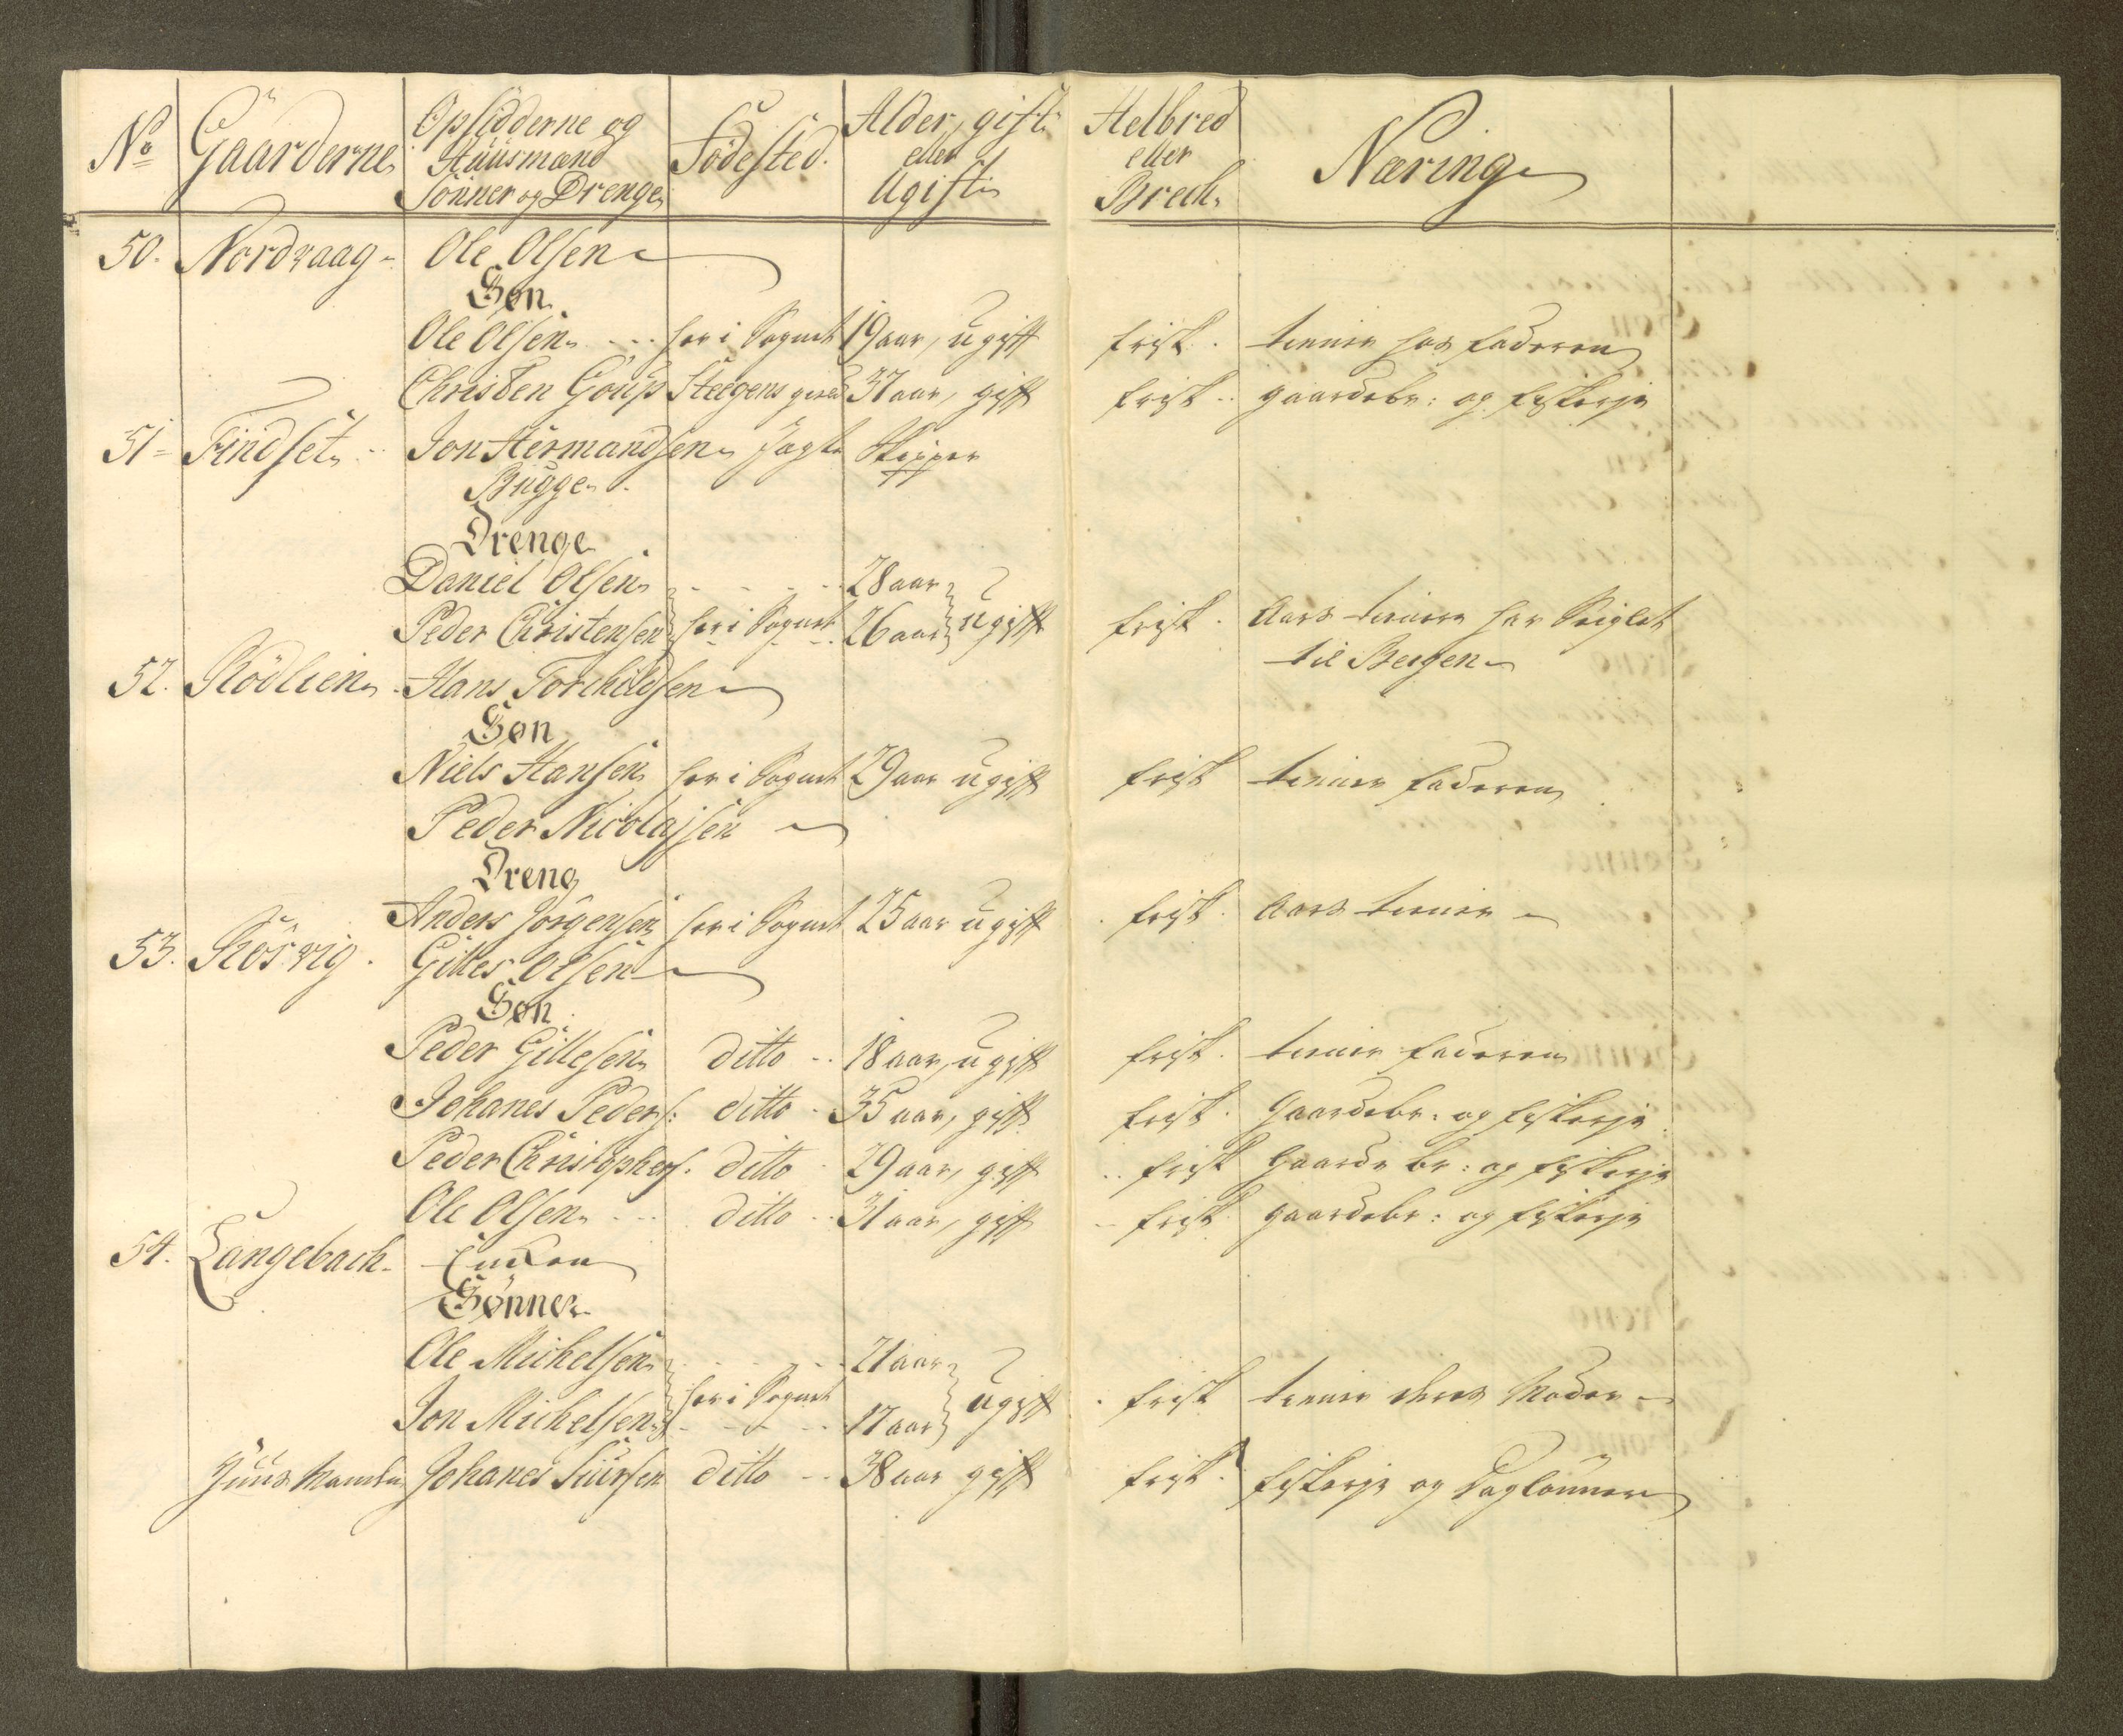 No Gaarderne Opsidderne og Huusmænd Sönner og Drenge Födested. Alder, gift eller Ugift Helbred eller Brech. Næring
50. Nordvaag Ole Olsen
Søn
Ole Olsen her i Sognet 19 aar, ugift frisk. tienner hos faderen
Christen Goup Steegens gield 37 aar, gift frisk gaardebr: og fiskerje
51 Findset Jon Hermandsen Jagte Skipper
Bugge
Drenge
Daniel Olsen 28 aar
Peder Christensen her i Sognet 26 aar ugift frisk. Aars tienere har Seiglet
til Bergen
52. Rödlien Hans Torchildsen
Søn
Niels Hansen her i Sognet 29 aar ugift frisk tienner faderen
Peder Nicolajsen
Dreng
Anders Jörgensen her i Sognet 25 aar ugift frisk. Aars tienner
53. Rösvig. Gilles Olsen
Søn
Peder Gillesen ditto 18 aar, ugift frisk. tienner faderen
Johanes Peders: ditto 35 aar, gift frisk. Gaardebr. og fiskerje
Peder Christophers. ditto 29 aar, gift frisk Gaarde br: og fiskerje
Ole Olsen ditto 31 aar, gift frisk gaardebr: og fiskerje
54. Langebach Enken
Sønner
Ole Michelsen 21 aar
Jon Michelsen her i Sognet 17 aar ugift frisk tienner deres Moder
Huus Mand Johanes Siursen ditto 38 aar gift frisk. fiskerje og Daglönner